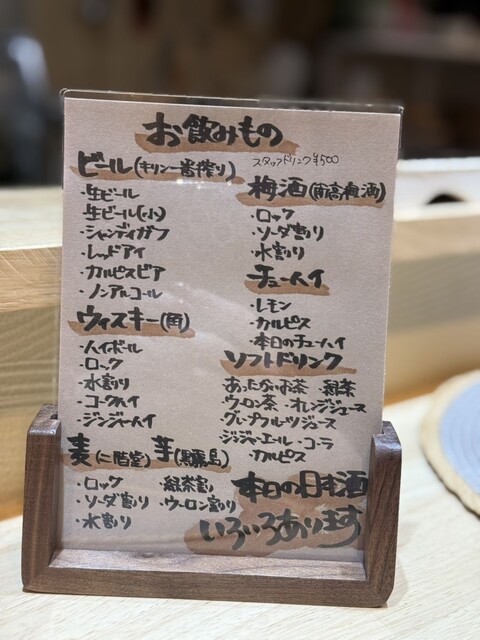 お飲みもの
スタッフドリンク¥500
ビール(キリン一番搾り)
・生ビール
・生ビール(小)
・シャンディガフ
・レッドアイ
・カルピスビア
・ノンアルコール
ウィスキー(角)
・ハイボール
・ロック
・水割り
・コークハイ
・ジンジャーハイ
麦(二階堂) 芋(黒霧島)
・ロック ・緑茶割り
・ソーダ割り ・ウーロン割り
・水割り
梅酒(南高梅酒)
・ロック
・ソーダ割り
・水割り
チューハイ
・レモン
・カルピス
・本日のチューハイ
ソフトドリンク
あったかいお茶・緑茶
ウーロン茶・オレンジジュース
グレープフルーツジュース
ジンジャーエール・コーラ
カルピス
本日の日本酒
いろいろあります